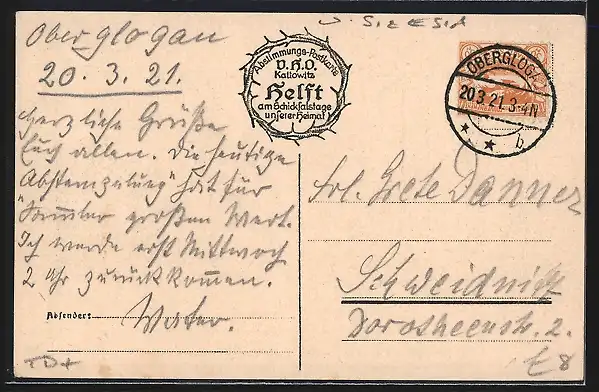 U. SILESIA
Oberglogau
20. 3. 21.
Abstimmungs-Postkarte
V.H.O.
Kattowitz
Helft
am Schicksalstage
unserer Heimat
OBERGLOGAU
20.3.21.3-4N
* * b
Herzliche Grüße
Euch allen. Die heutige
Abstempelung hat für
Sammler großen Wert.
Ich werde erst Mittwoch
2 Uhr zurückkommen.
Absender: Vater.
Frl. Grete Danner
Schweidnitz
Dorotheenstr. 2.
E8